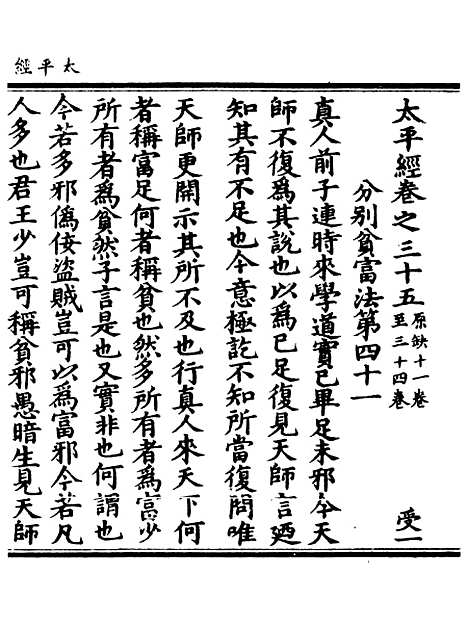 太平經
太平經卷之三十五 原缺十一卷至三十四卷 受一
分別貧富法第四十一
真人前子連時來學道實已畢足未邪今天
師不復爲其說也以爲已足復見天師言廼
知其有不足也今意極訖不知所當復問唯
天師更開示其所不及也行真人來天下何
者稱富足何者稱貧也然多所有者爲富少
所有者爲貧然子言是也又實非也何謂也
今若多邪僞佞盜賊豈可以爲富邪今若凡
人多也君王少豈可稱貧邪愚暗生見天師